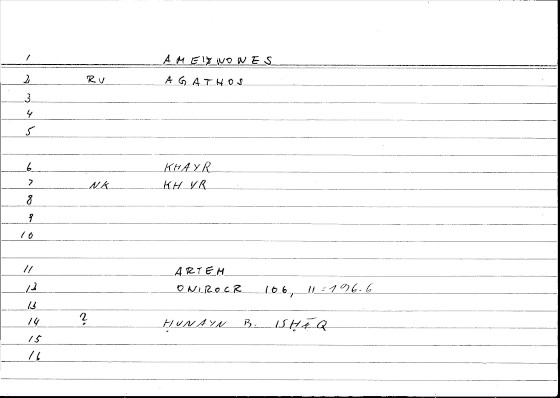 1 AMEINONES
2 RV AGATHOS
3
4
5
6 KHAYR
7 NK KHYR
8
9
10
11 ARTEM
12 ONIROCR 106, 11=196.6
13
14 ? ḤUNAYN B. ISḤĀQ
15
16